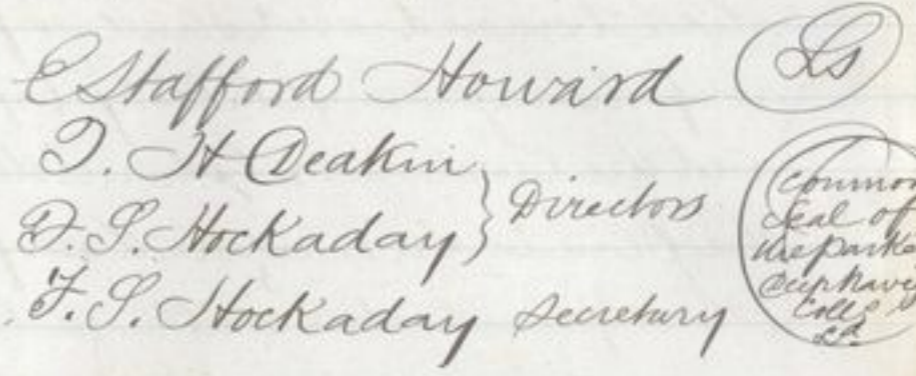 E Stafford Howard Ls
T. H Deakin
F. S. Hockaday } Directors
F. S. Hockaday Secretary
Common
Seal of
the Parke
Deep Navig
Coll
Ld